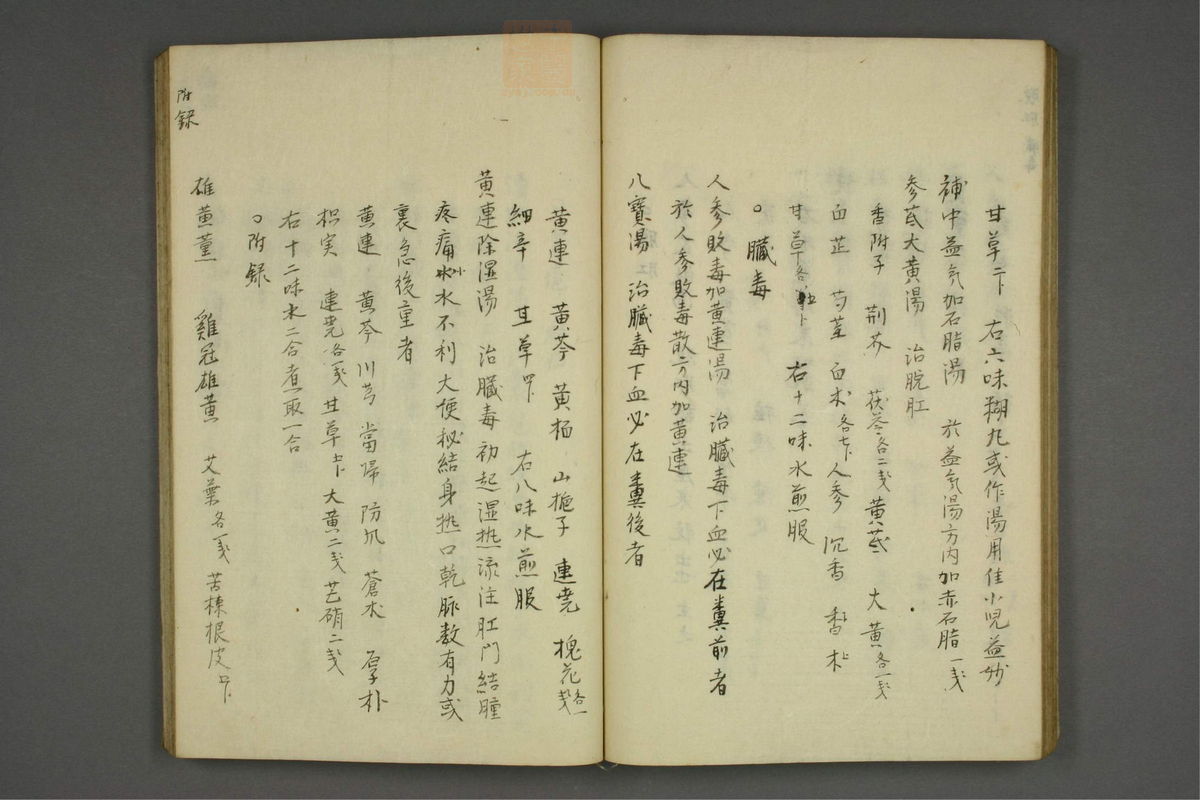 甘草二卜　右六味糊丸或作湯用佳小児益妙
補中益気加石脂湯　於益気湯方内加赤石脂一戔
参芪大黄湯　治脱肛
香附子　荊芥　茯苓各二戔　黄芪　大黄各一戔
白芷　芍薬　白朮各七卜　人参　沉香
甘草各卜　右十二味水煎服
○臓毒
人参敗毒加黄連湯　治臓毒下血必在糞前者
於人参敗毒散方内加黄連
八寶湯　治臓毒下血必在糞後者
黄連　黄芩　黄栢　山梔子　連尭　槐花各一戔
細辛　甘草卜　右八味水煎服
黄連除湿湯　治臓毒初起湿热流注肛門結腫
疼痛小水不利大便秘結身热口乾脉数有力或
裏急後重者
黄連　黄芩　川芎　當帰　防风　蒼朮　厚朴
枳実　連尭各戔　甘草七卜　大黄二戔　芒硝二戔
右十二味水二合煮取一合
○附録
附録
雄黄薫　雞冠雄黄　艾葉各一戔　苦楝根皮卜